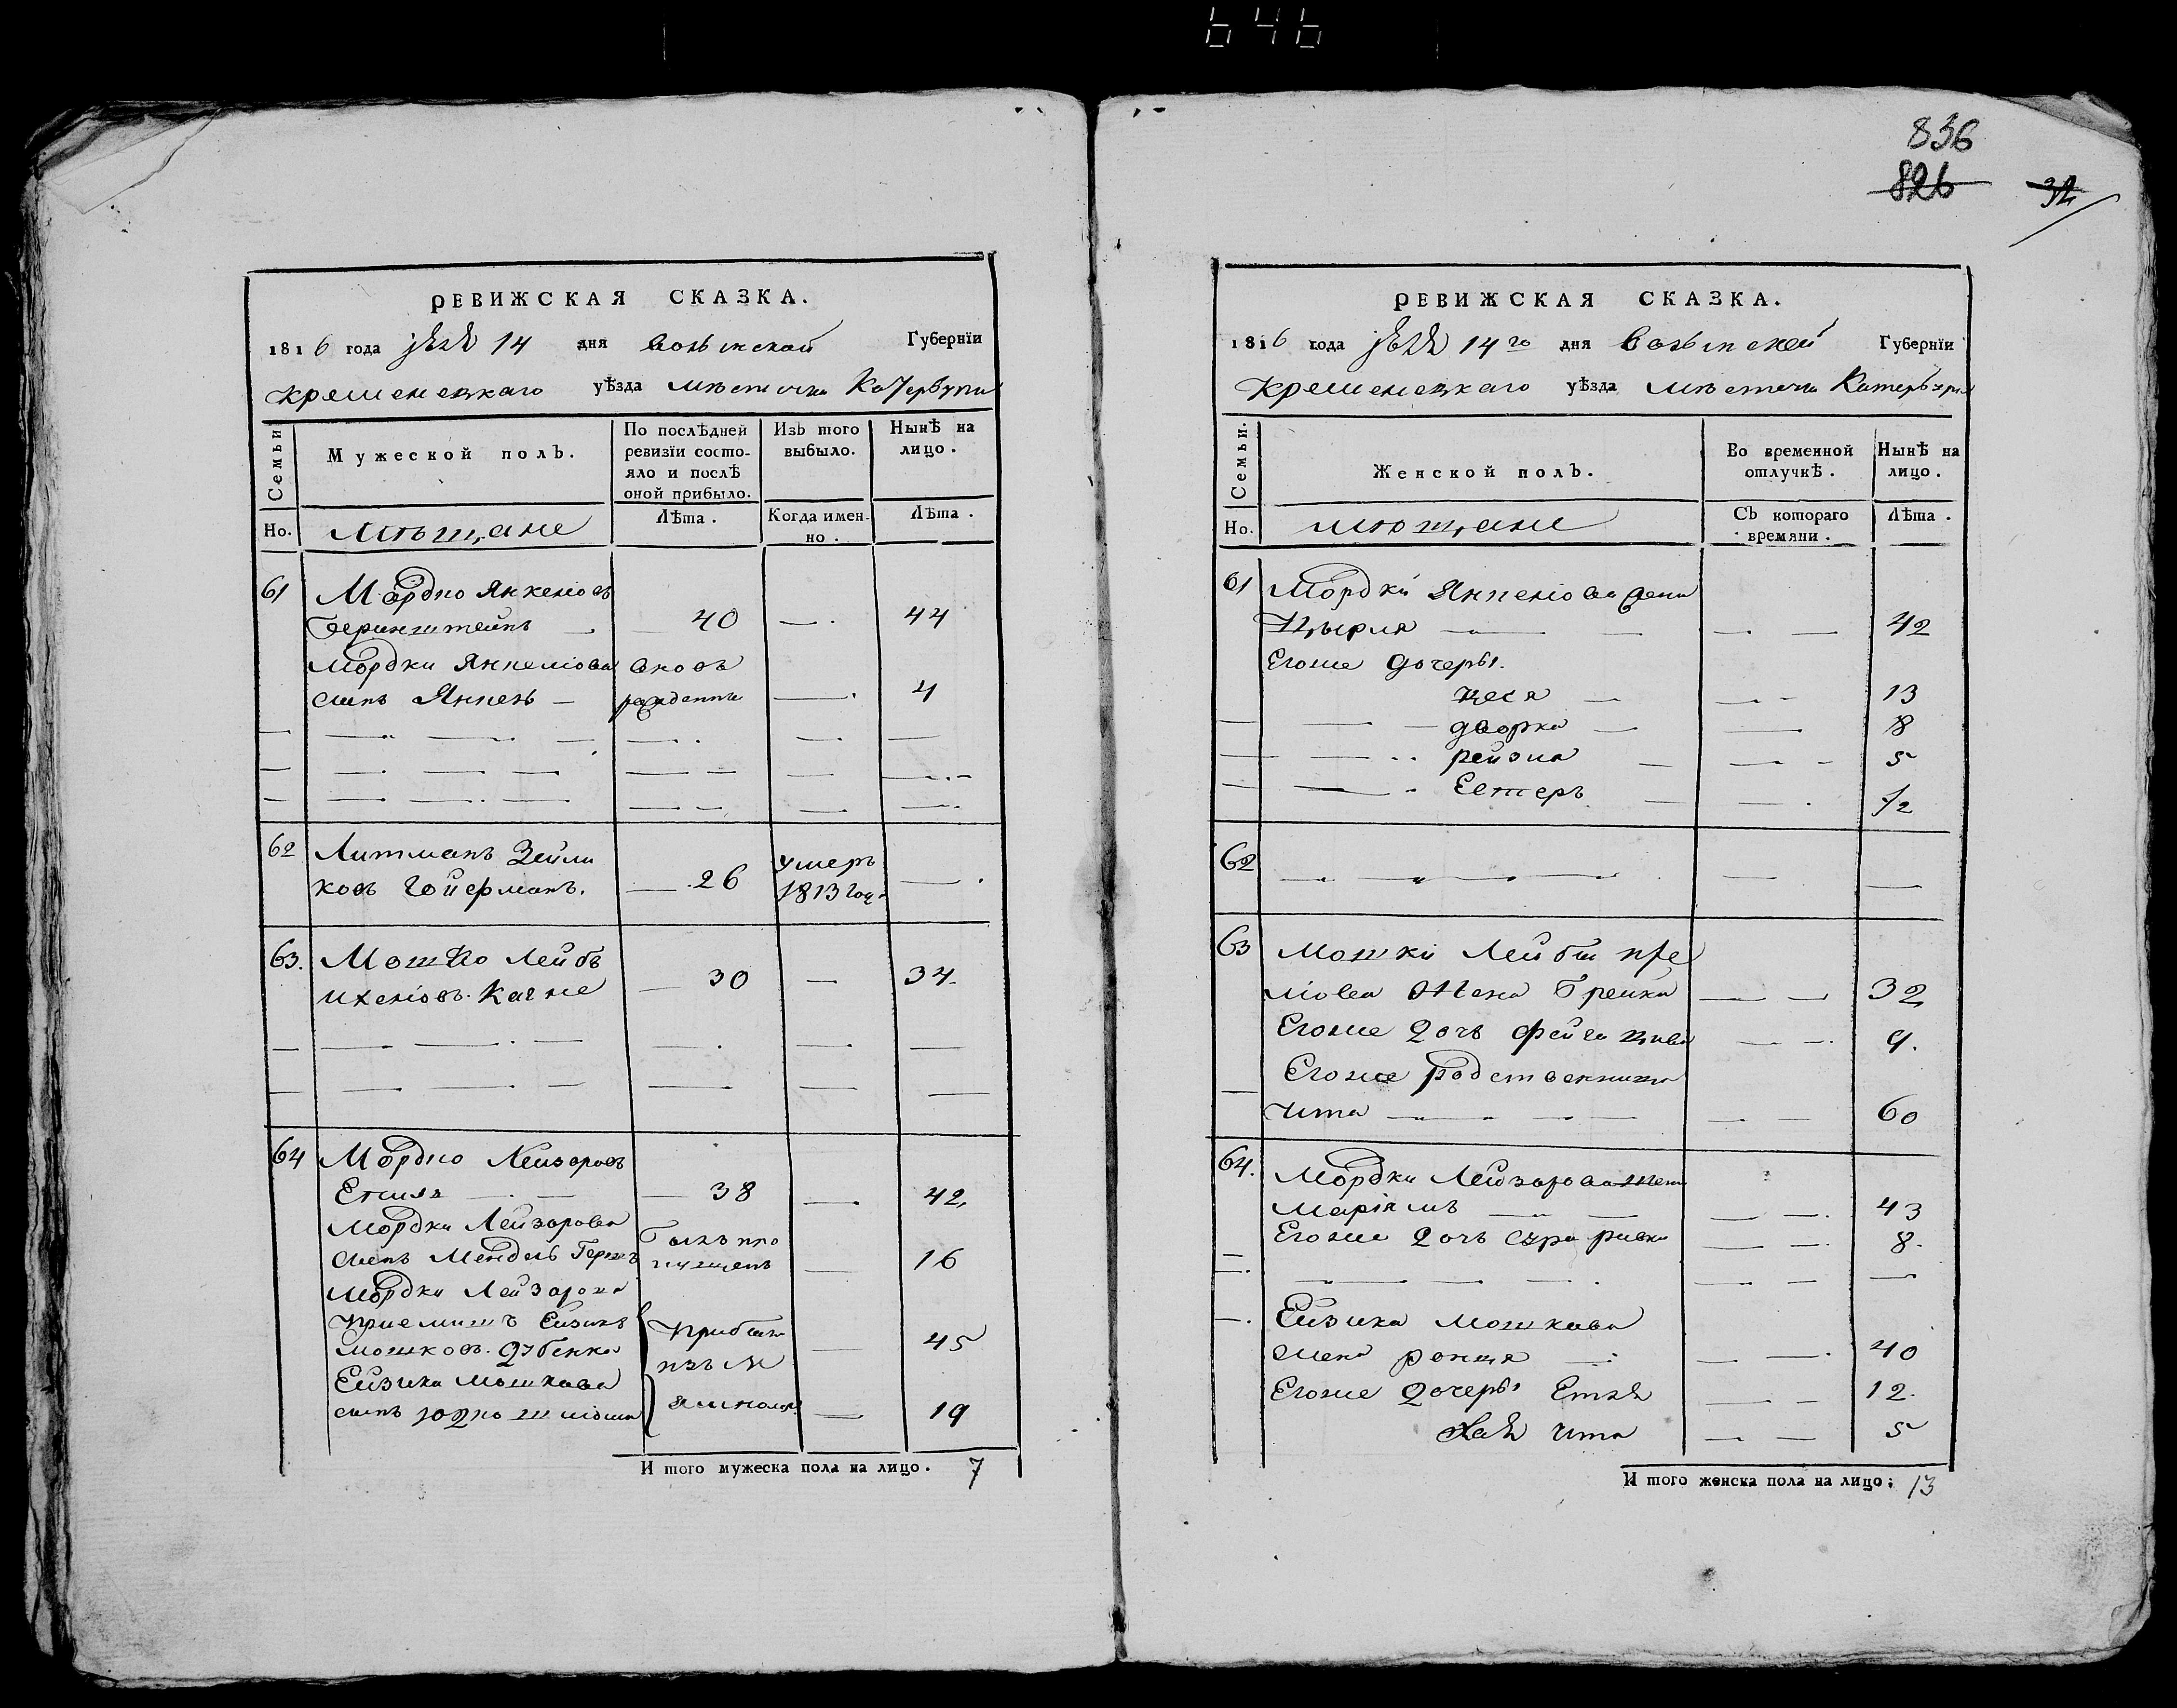 646
836
826
32
РЕВИЖСКАЯ СКАЗКА.
1816 года 14 дня Волынской Губернїи
Кременецкаго уѣзда мѣстечка
Семьи
Мужеской полъ.
По послѣдней ревизїи состо-
яло и послѣ
оной прибыло.
Изъ того
выбыло.
Нынѣ на
лицо.
Но.
мѣщане
Лѣта.
Когда имен-
но.
Лѣта.
61 Мордко Янкелїовъ
Беринштейнъ — 40 — 44
Мордки Янкелїова вновь
сынъ Янкель — рожденъ — 4
62 Литманъ Зейли
ковъ Гойерманъ. — 26 умеръ 1813 года —
63. Мошко Лейбъ
Кагне — 30 — 34
64 Мордко Лейзоровъ
38 — 42
Мордки Лейзорова
сынъ Мендель Гершъ Былъ про
пущенъ — 16
Мордки Лейзорова
приемышъ Ейзикъ прибыли
Мошковъ Дубенка изъ м — 45
Ейзика Мошкова
сынъ Юдко Шлїома — 19
И того мужеска пола на лицо. 7
РЕВИЖСКАЯ СКАЗКА.
1816 года 14го дня Волынской Губернїи
Кременецкаго уѣзда мѣстечка
Семьи.
Женской полъ.
Во временной
отлучкѣ.
Нынѣ на
лицо.
Но.
мѣщане
Съ котораго
времяни.
Лѣта.
61 Мордки Янкелїова жена
Цырля — 42
Егоже дочеры.
Цеся — 13
Дворка — 8
Рейзиа — 5
Естеръ — 1/2
62
63 Мошки Лейбы
жена Брейна — 32
Егоже дочь Фейга Цива — 9.
Егоже родственница
Ита — 60
64. Мордки Лейзорова жена
Марїямъ — 43
Егоже дочь Сура Ривка — 8
Ейзика Мошкова
жена — 40
Егоже дочеры Етля — 12.
Хая Ита — 5
И того женска пола на лицо; 13